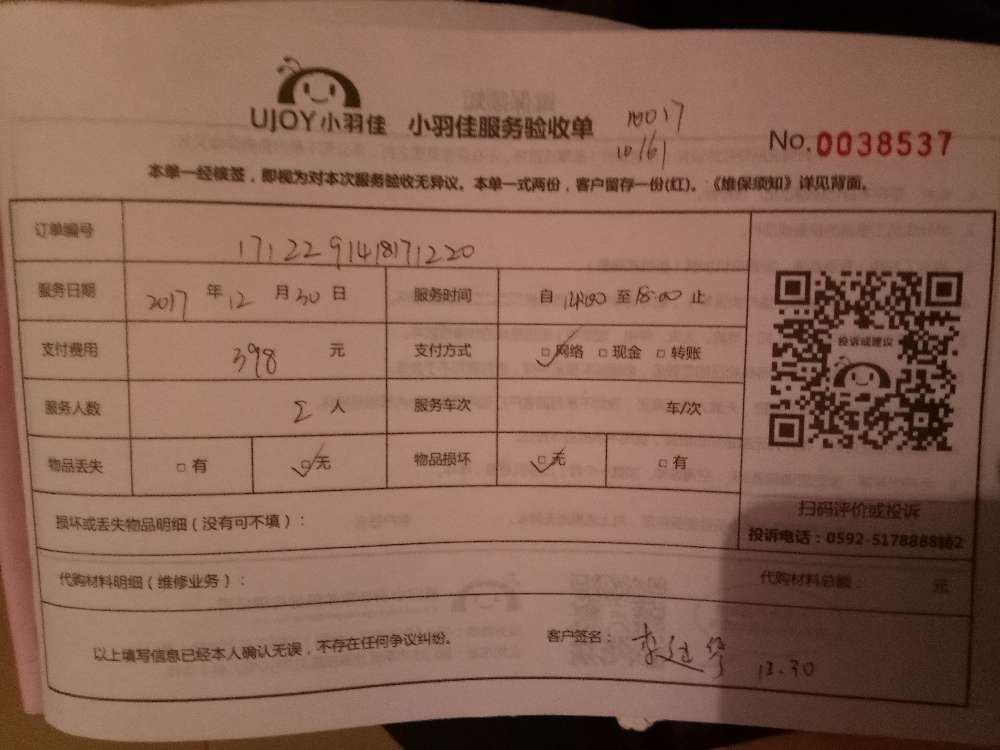 UJOY小羽佳 小羽佳服务验收单
10017
10161
No.0038537
本单一经核签，即视为对本次服务验收无异议。本单一式两份，客户留存一份(红)。《维保须知》详见背面。
订单编号 171229141817122 0
服务日期 2017 年 12 月 30 日 服务时间 自 14:00 至 18:00 止
支付费用 398 元 支付方式 □网络 □现金 □转账
服务人数 2 人 服务车次 车/次
物品丢失 □有 □无 物品损坏 □无 □有
投诉或建议
扫码评价或投诉
投诉电话：0592-5178888转2
损坏或丢失物品明细（没有可不填）：
代购材料明细（维修业务）： 代购材料总额 元
以上填写信息已经本人确认无误，不存在任何争议纠纷。 客户签名： 12.30